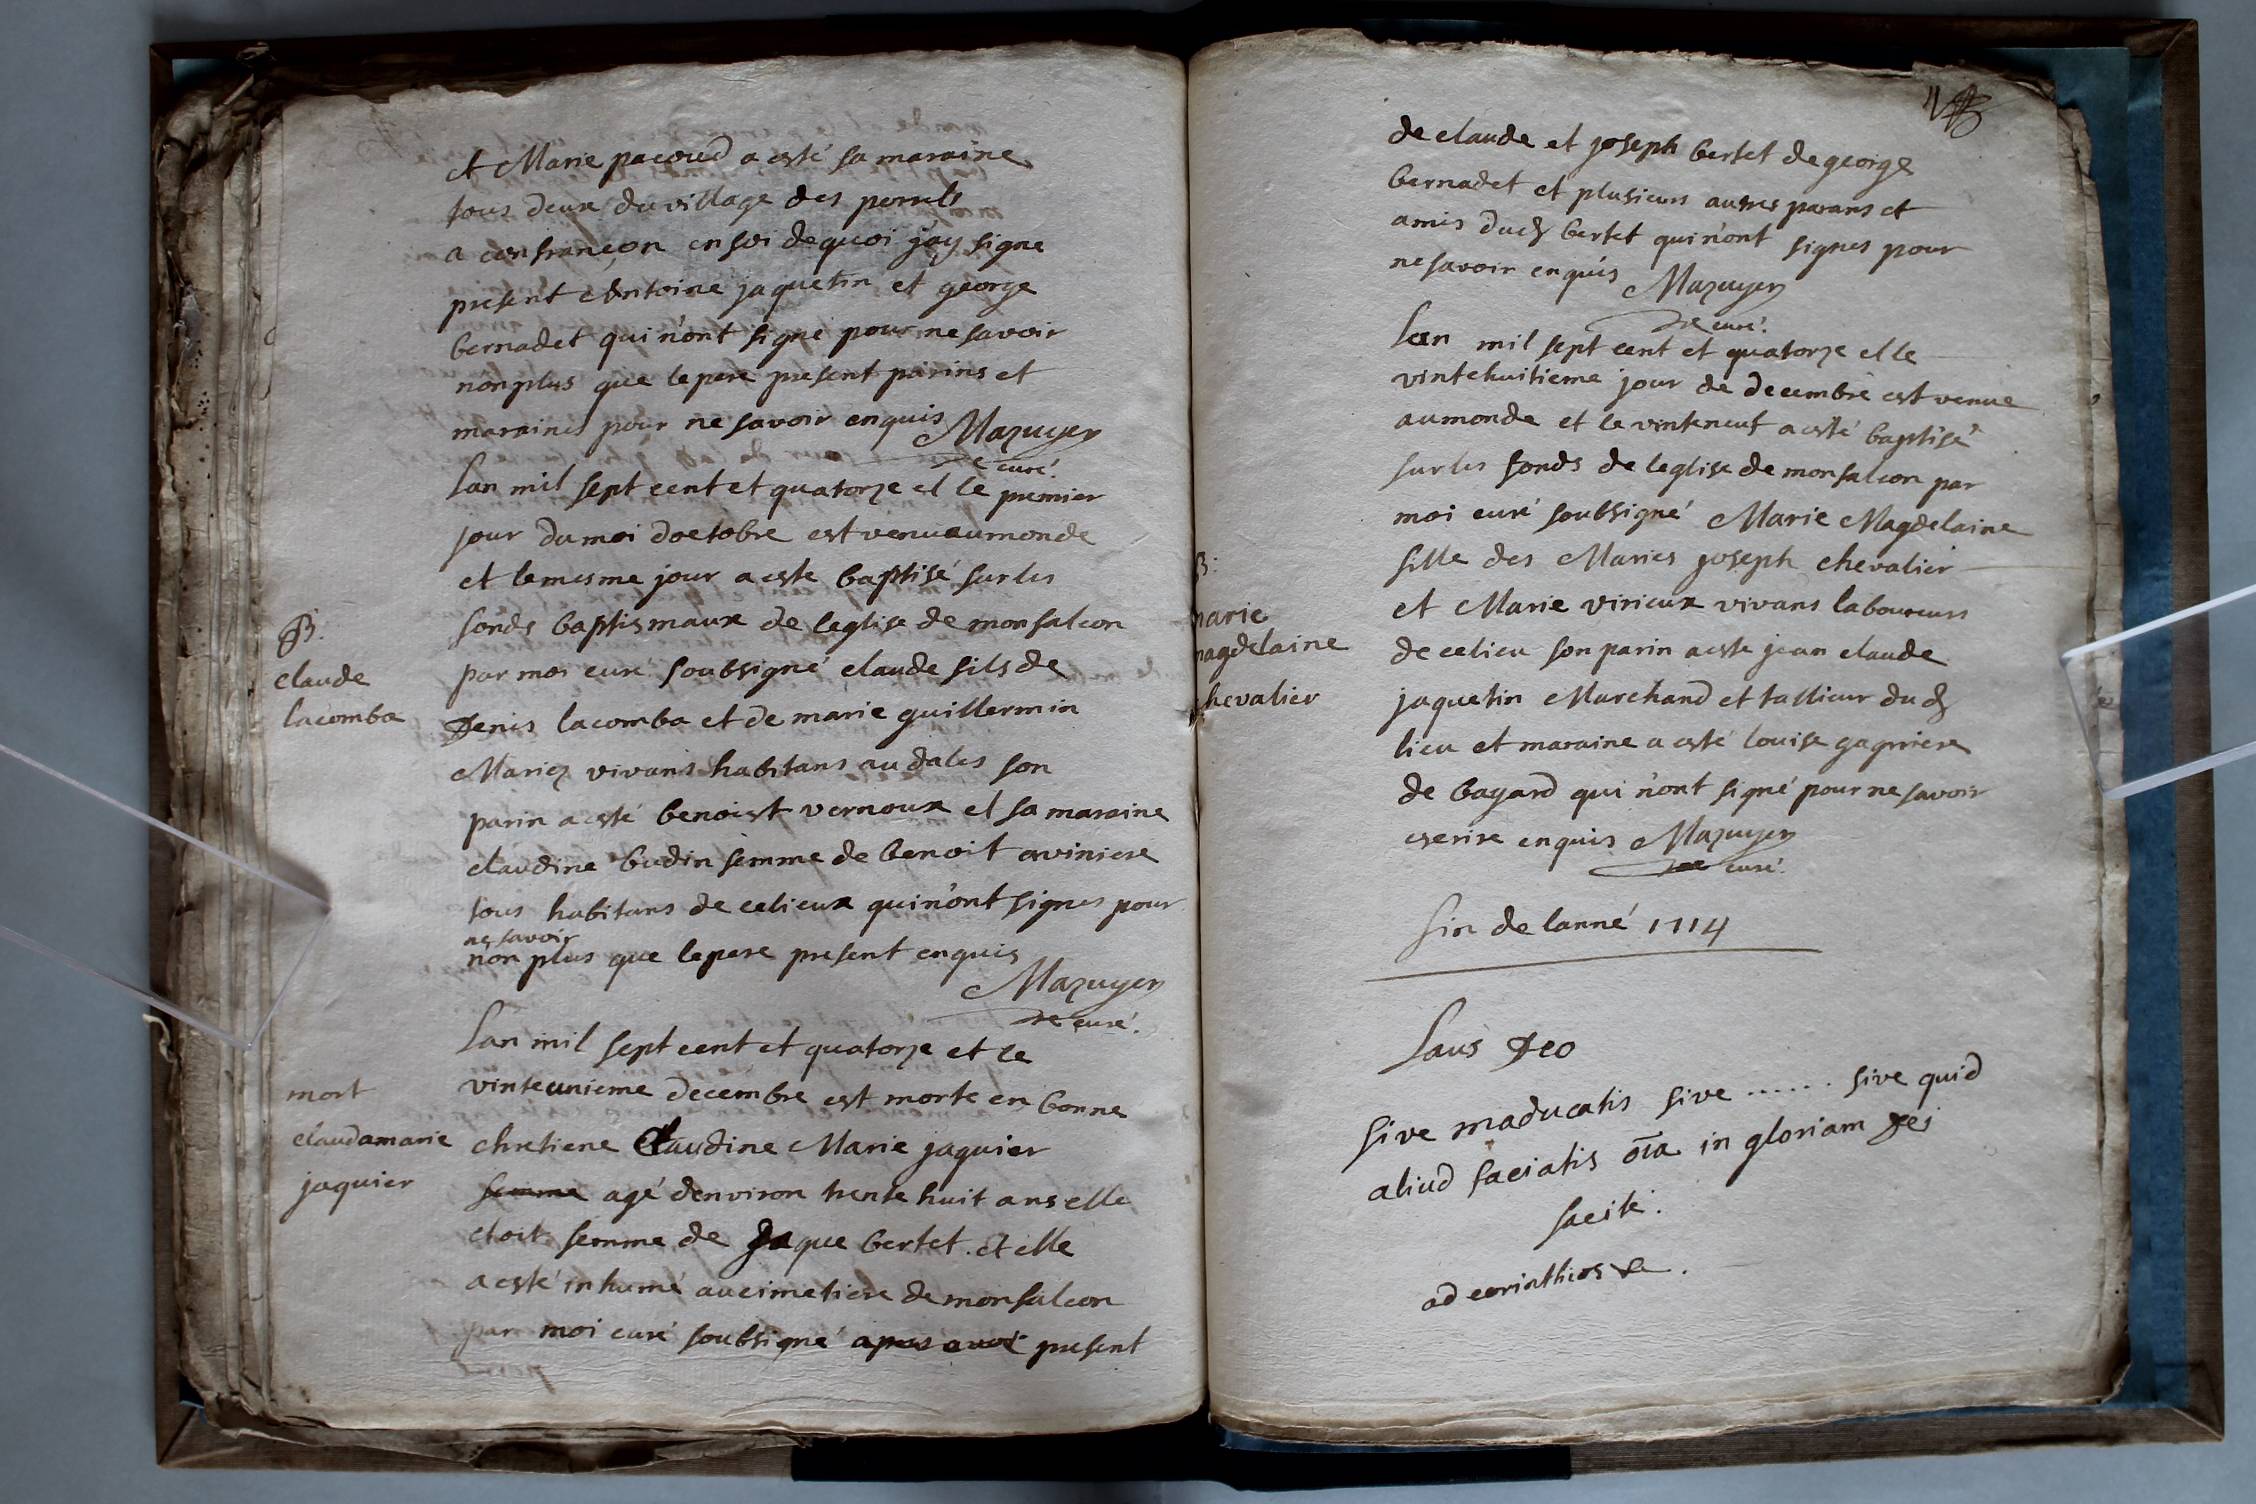 et Marie pacoud a esté sa maraine
tous deux du village des perrels
a confrançon en foi dequoi j'ay signe
present Antoine jaquetin et george
bernadet qui n'ont signé pour ne savoir
nonplus que le pere present parins et
maraines pour ne savoir enquis Mazuyer
curé.
Lan mil sept cent et quatorze et le premier
jour du moi doctobre est venu aumonde
et le mesme jour a este baptisé sur les
fonds baptismaux de leglise de monfalcon
par moi curé soubsigné claude fils de
Denis lacomba et de marie guillermin
Mariez vivans habitans au dales son
parin a esté benoist vernoux et sa maraine
claudine budin femme de benoit aviniere
tous habitans de celieux qui n'ont signes pour
ne savoir
non plus que le pere present enquis
Mazuyer
curé.
B.
claude
lacomba
Lan mil sept cent et quatorze et le
vinteunieme decembre est morte en bonne
chretiene Claudine Marie jaquier
femme agé denviron trente huit ans elle
etoit femme de Jaque bertet. et elle
a esté inhumé au cimetiere de monfalcon
par moi curé soubsigné apres avoi present
mort
claudamarie
jaquier
de claude et joseph bertet de george
bernadet et plusieurs autres parans et
amis dud bertet qui n'ont signes pour
ne savoir enquis Mazuyer
curé.
Lan mil sept cent et quatorze et le
vintehuitieme jour de decembre est venue
aumonde et le vinteneuf a esté baptisé
sur les fonds de leglise de monfalcon par
moi curé soubsigné Marie Magdelaine
fille des Maries joseph chevalier
et Marie virieux vivans laboureurs
de celieu son parin a este jean claude
jaquetin Marchand et tallieur dud
lieu et maraine a esté louise gagniere
de bayard qui n'ont signé pour ne savoir
escrire enquis Mazuyer
curé.
B:
marie
magdelaine
chevalier
fin de lanné 1714
Laus Deo
sive maducatis sive ...... sive quid
aliud faciatis oīa in gloriam Dei
facite.
ad corinthios &c.